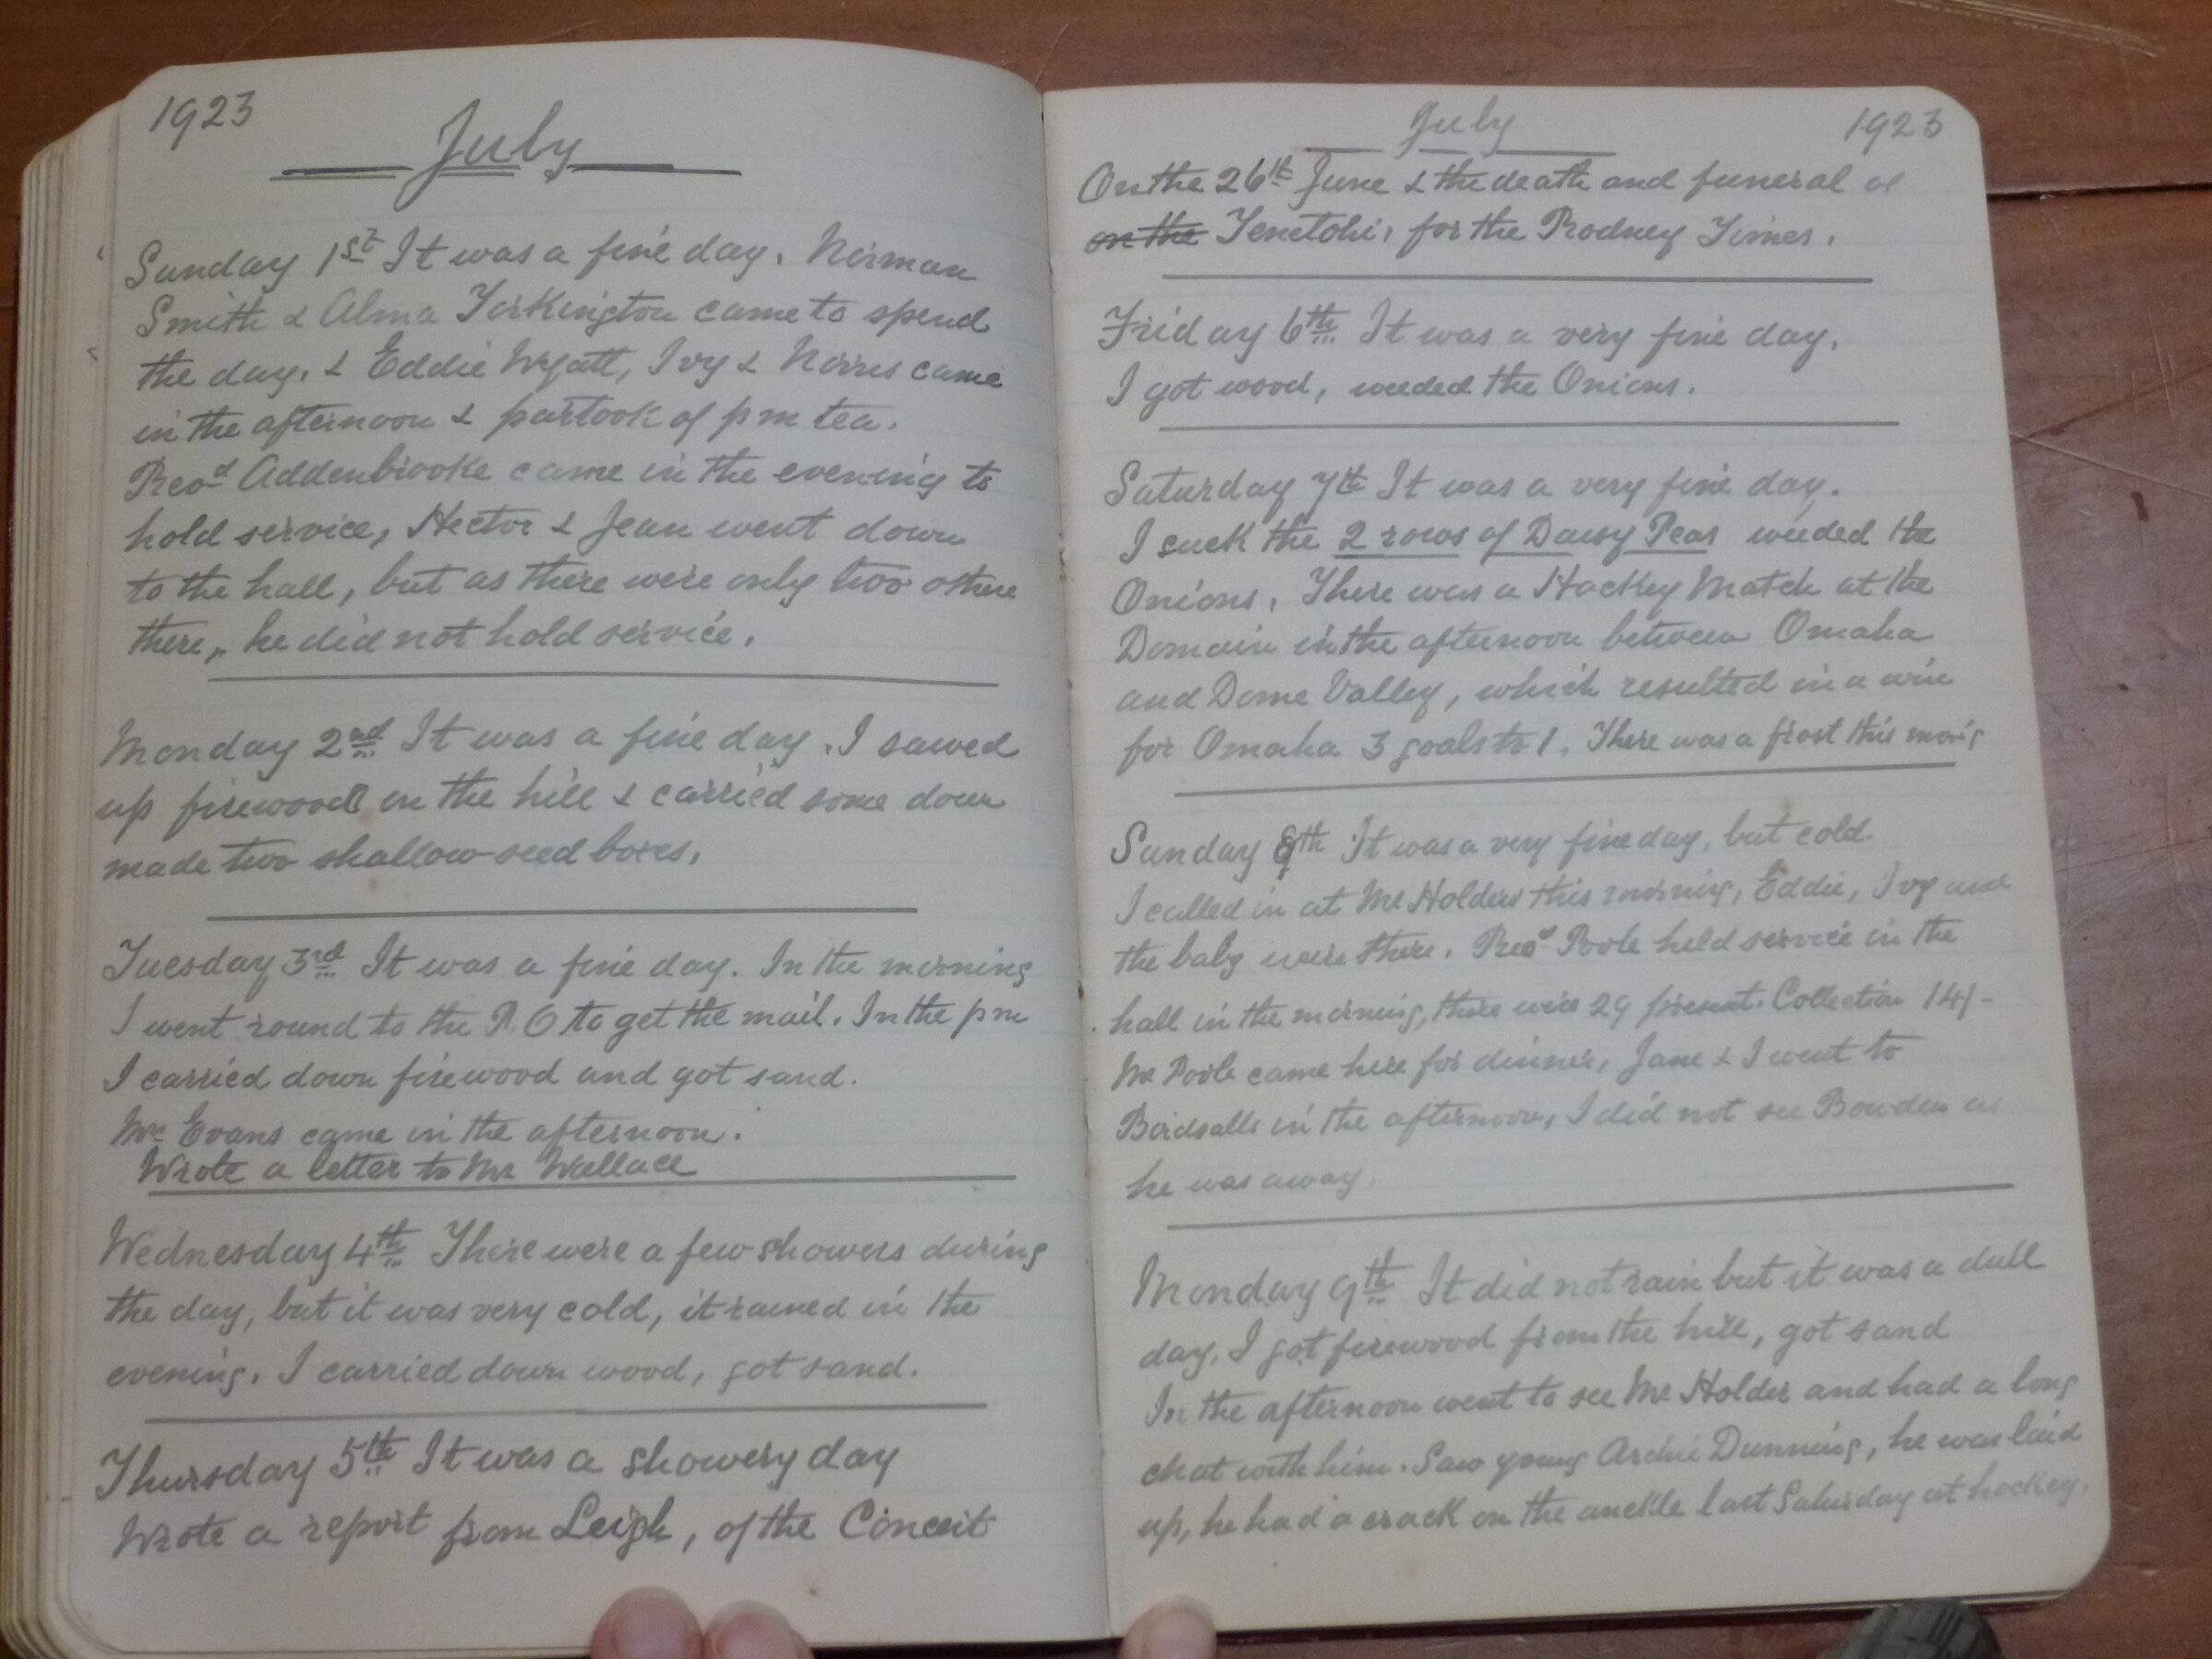 1923
July
Sunday 1st It was a fine day. Norman
Smith & Alma Torkington came to spend
the day. & Eddie Wyatt, Ivy & Norris came
in the afternoon & partook of pm tea.
Revd Addenbrooke came in the evening to
hold service, Hector & Jean went down
to the hall, but as there were only two others
there, he did not hold service.
Monday 2nd It was a fine day. I sawed
up firewood on the hill & carried some down
made two shallow seed boxes.
Tuesday 3rd It was a fine day. In the morning
I went round to the P.O to get the mail. In the pm
I carried down firewood and got sand.
Mr Evans came in the afternoon.
Wrote a letter to Mr Wallace
Wednesday 4th There were a few showers during
the day, but it was very cold, it rained in the
evening. I carried down wood, got sand.
Thursday 5th It was a showery day
Wrote a report from Leigh, of the Concert
July
1923
On the 26th June & the death and funeral of
on the Tenetohi, for the Rodney Times.
Friday 6th It was a very fine day.
I got wood, weeded the Onions.
Saturday 7th It was a very fine day.
I suck the 2 rows of Daisy Peas weeded the
Onions. There was a Hockey Match at the
Domain in the afternoon between Omaha
and Dome Valley, which resulted in a win
for Omaha 3 goals to 1. There was a frost this morng
Sunday 8th It was a very fine day, but cold
I called in at Mr Holders this morning, Eddie, Ivy and
the baby were there. Revd Poole held service in the
hall in the morning, there were 29 present. Collection 14/-
Mr Poole came here for dinner, Jane & I went to
Birdsalls in the afternoon, I did not see Bowden as
he was away.
Monday 9th It did not rain but it was a dull
day, I got firewood from the hill, got sand
In the afternoon went to see Mr Holder and had a long
chat with him. Saw young Archie Dunning, he was laid
up, he had a crack on the anckle last Saturday at hockey.